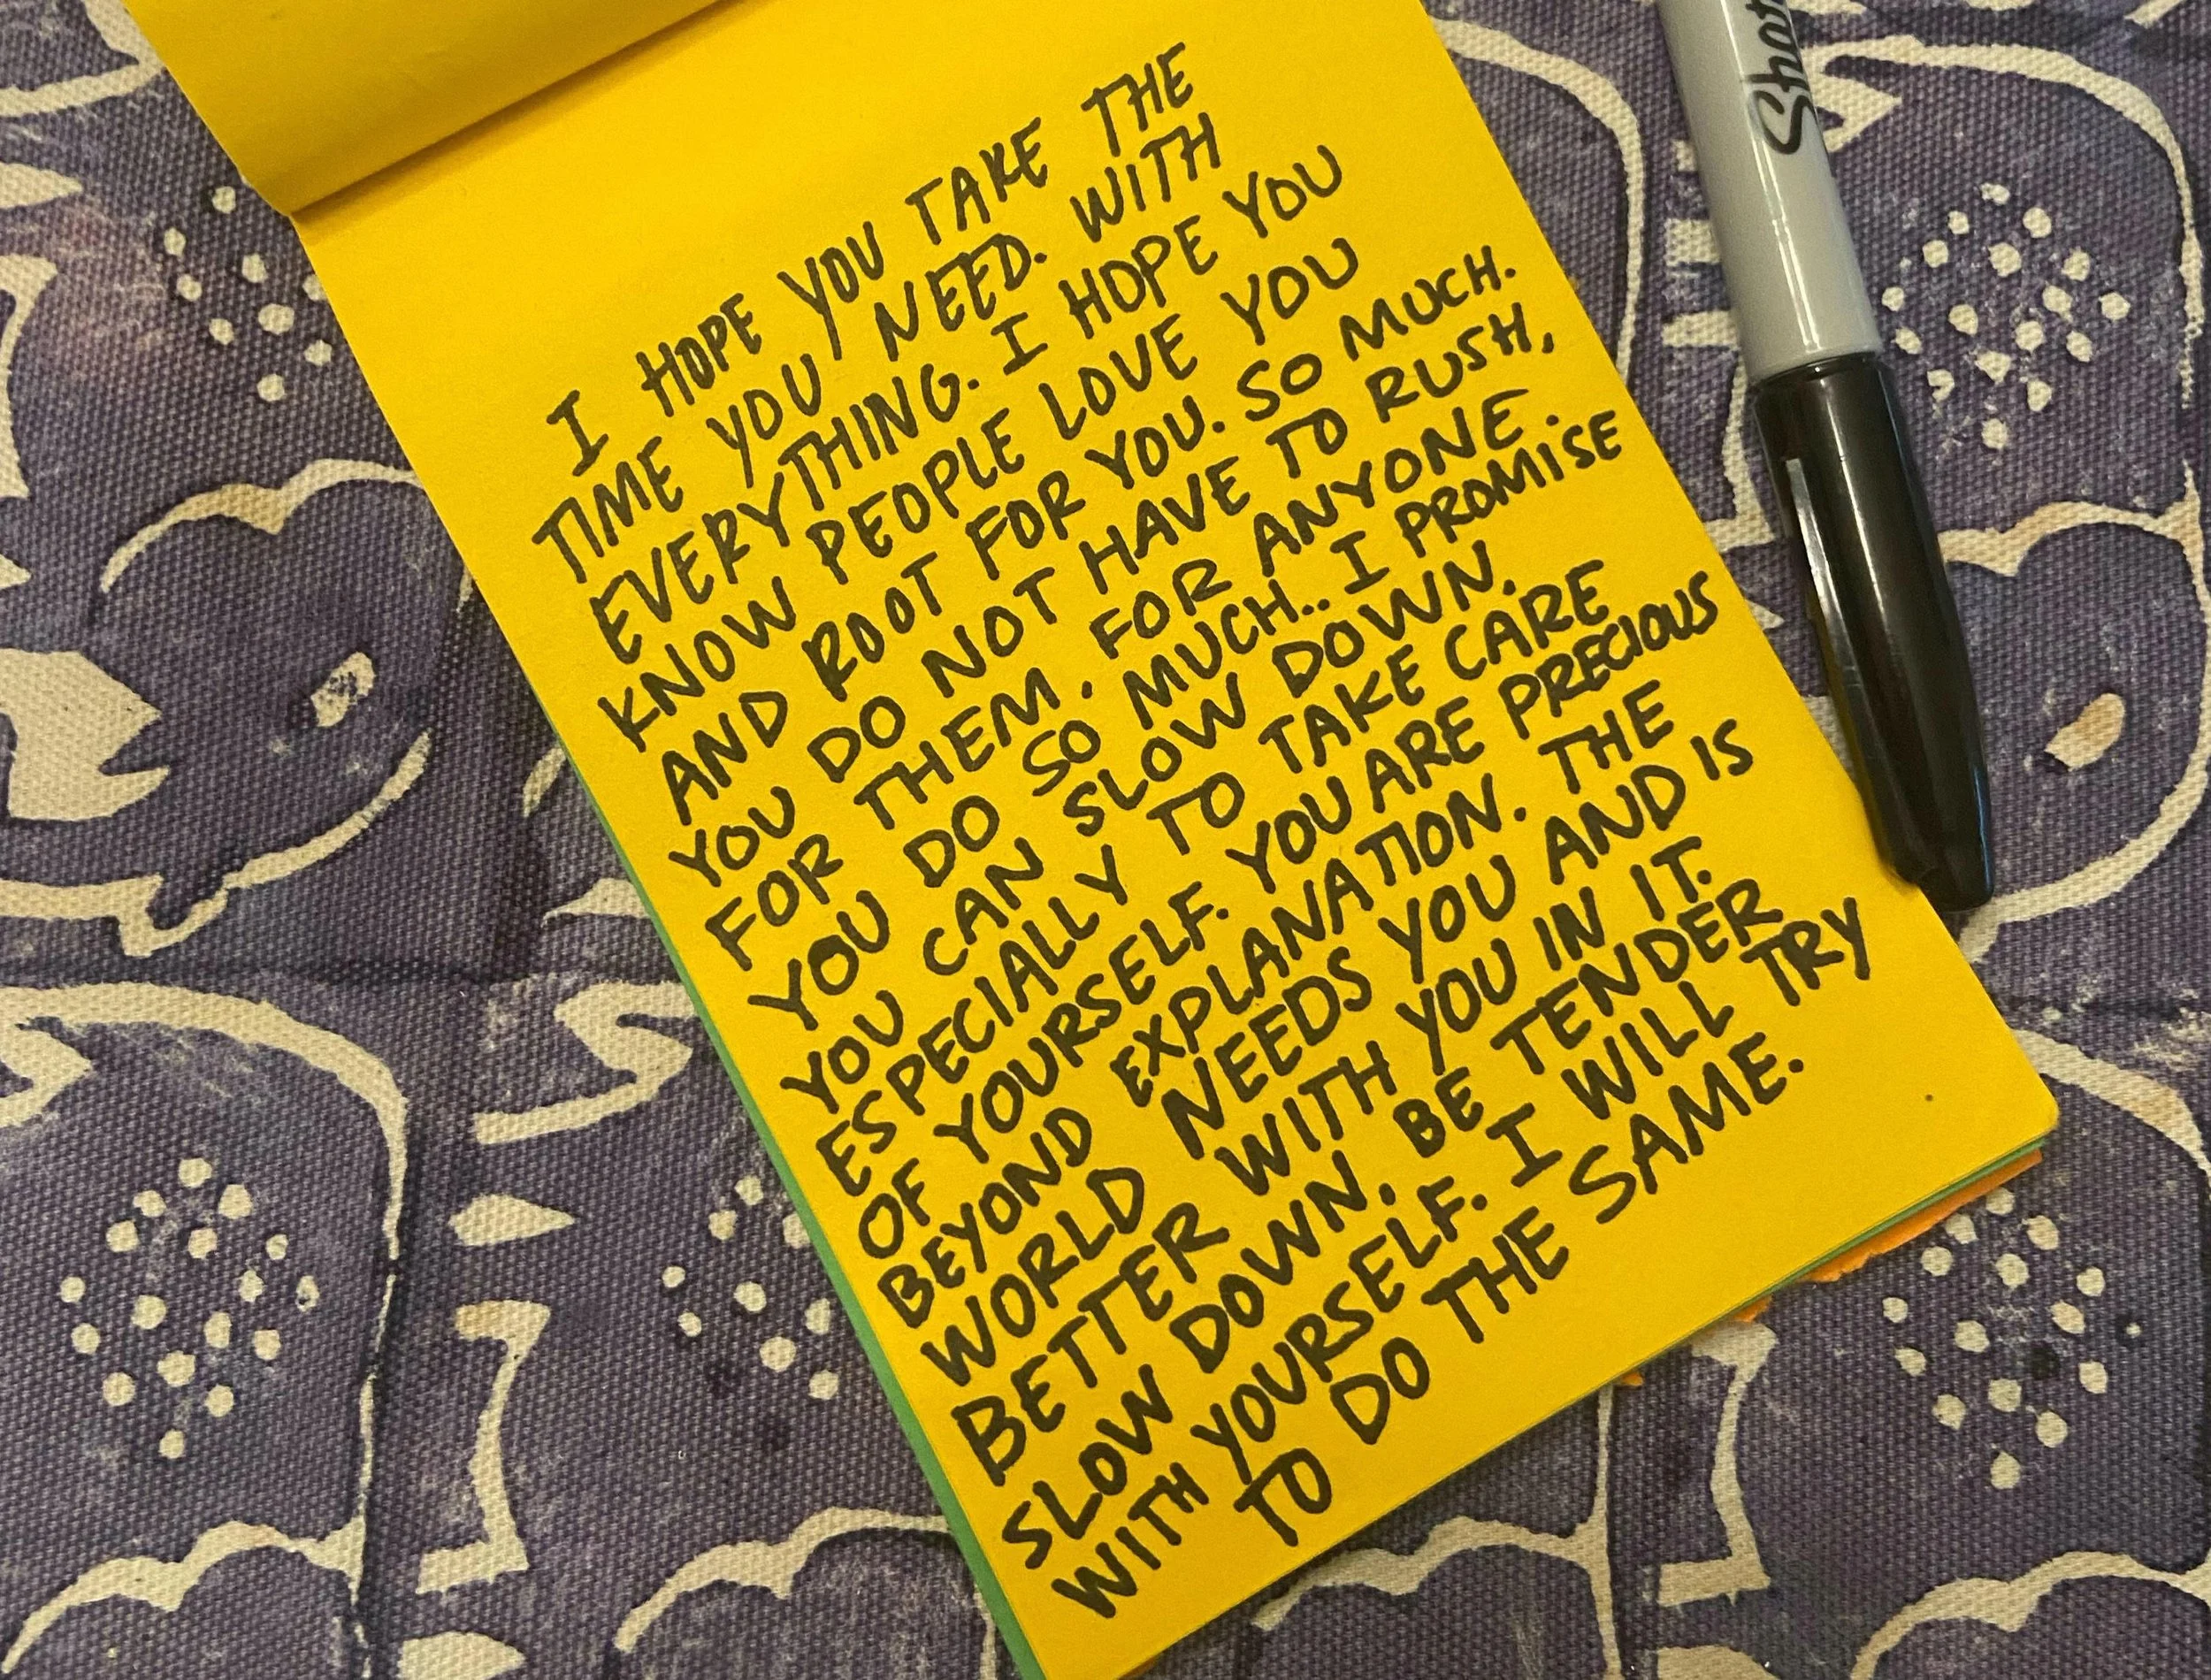 I HOPE YOU TAKE THE
TIME YOU NEED. WITH
EVERYTHING. I HOPE YOU
KNOW PEOPLE LOVE YOU
AND ROOT FOR YOU. SO MUCH.
YOU DO NOT HAVE TO RUSH,
FOR THEM. FOR ANYONE.
YOU DO SO MUCH.. I PROMISE
YOU CAN SLOW DOWN.
ESPECIALLY TO TAKE CARE
OF YOURSELF. YOU ARE PRECIOUS
BEYOND EXPLANATION. THE
WORLD NEEDS YOU AND IS
BETTER WITH YOU IN IT.
SLOW DOWN. BE TENDER
WITH YOURSELF. I WILL TRY
TO DO THE SAME.